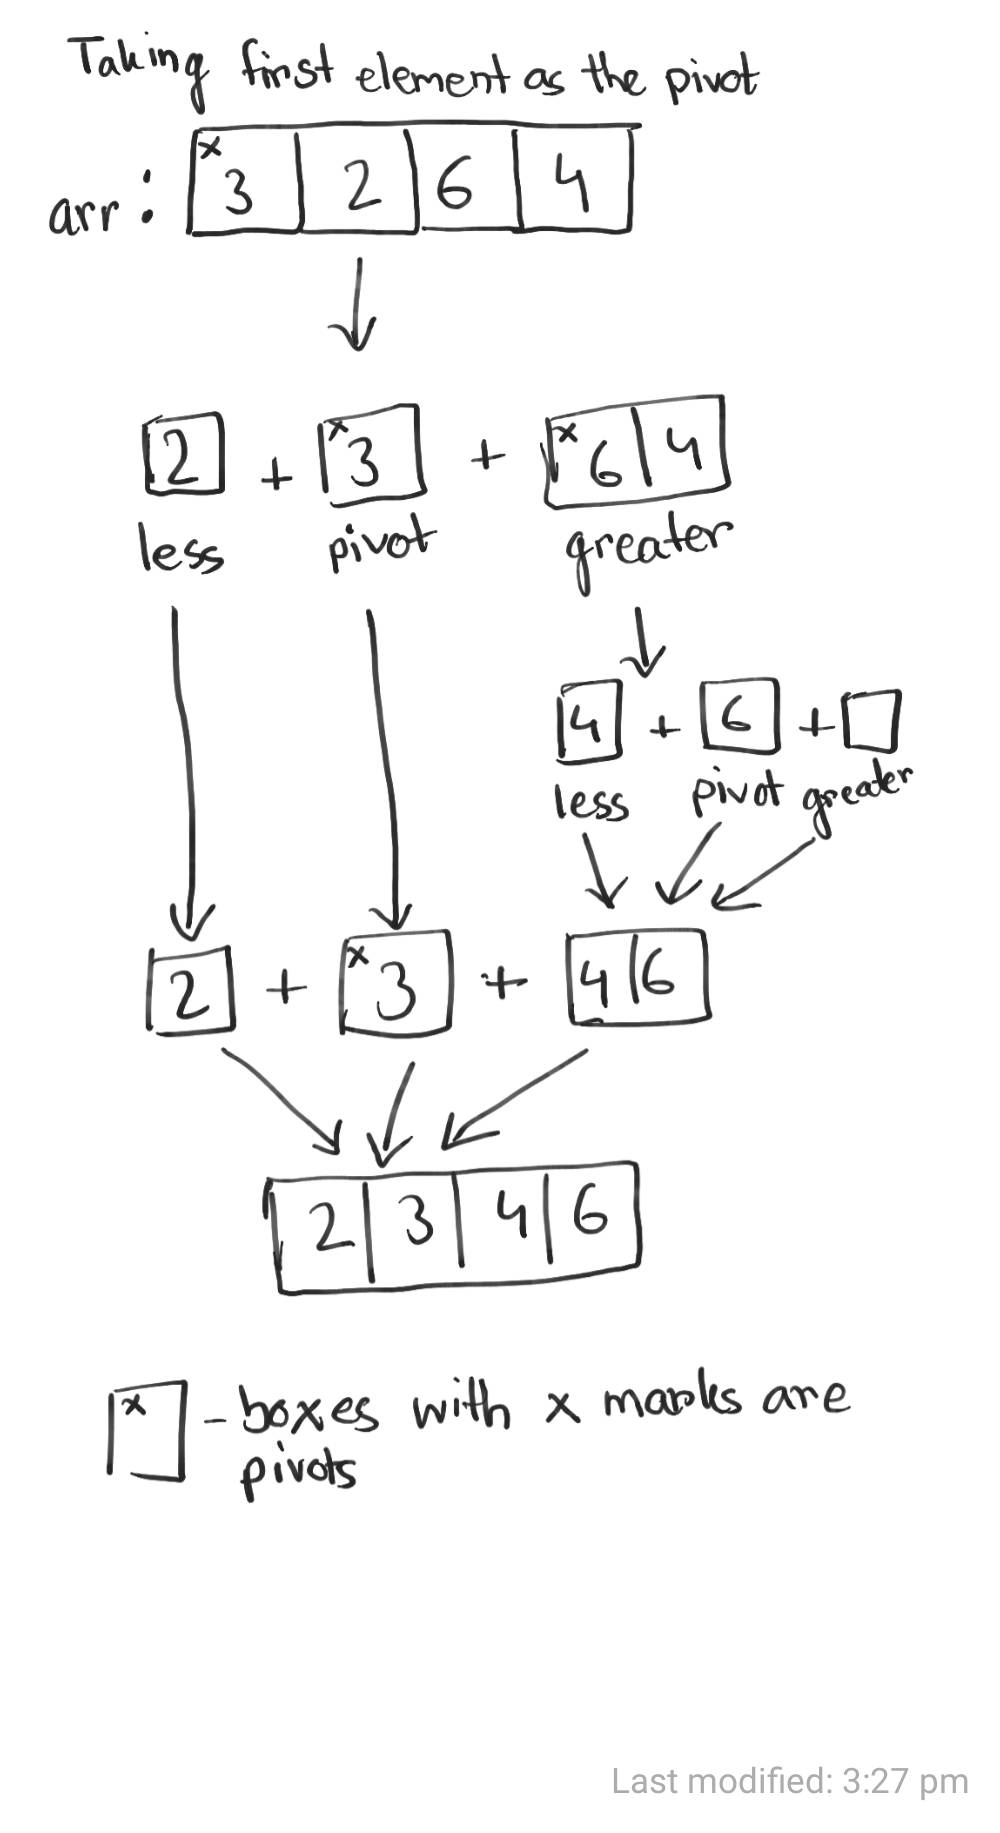 Taking first element as the pivot
arr: x 3 2 6 4
2 + x 3 + x 6 4
less pivot greater
4 + 6 +
less pivot greater
2 + x 3 + 4 6
2 3 4 6
x - boxes with x marks are
pivots
Last modified: 3:27 pm